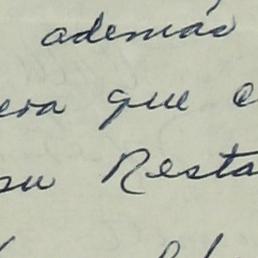 además
era que
su Resta